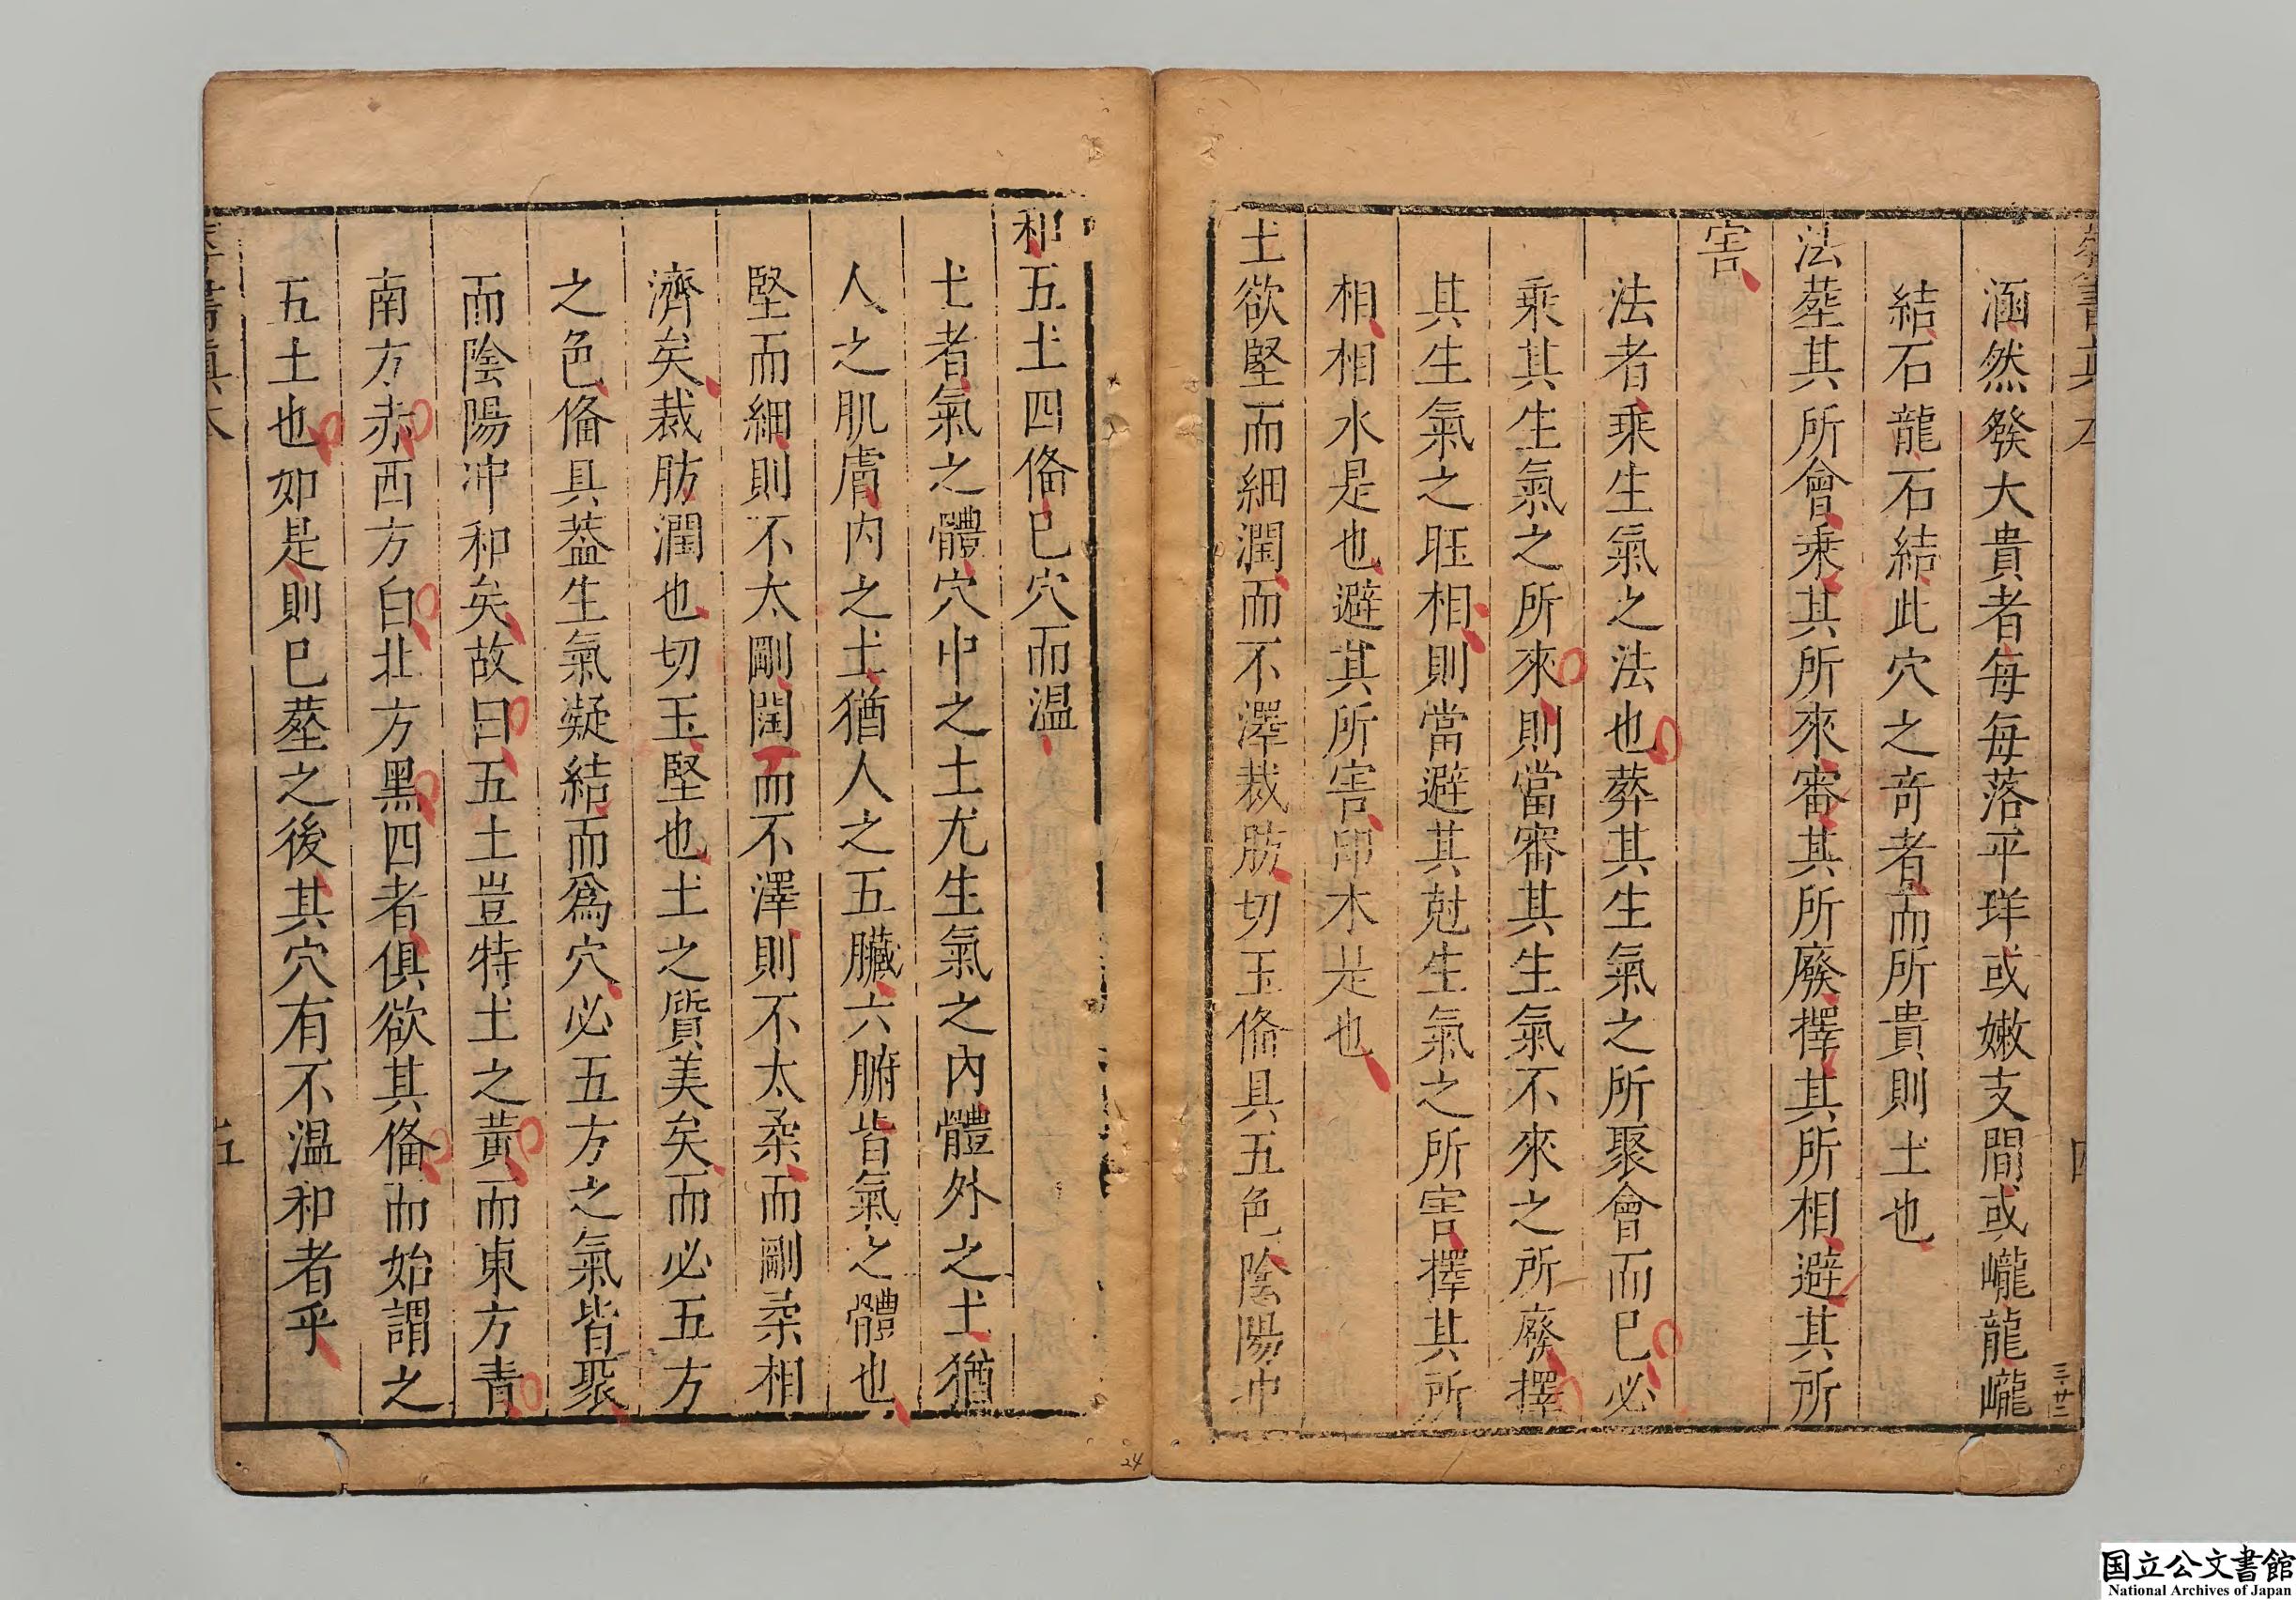 涵然發大貴者每每落平珜或嫩支間或巄龍巄
結石龍石結此穴之竒者而所貴則土也
法葬其所會乘其所來審其所廢擇其所相避其所
害
法者乘生氣之法也葬其生氣之所聚會而已必
乘其生氣之所來則當審其生氣不來之所廢擇
其生氣之旺相則當避其尅生氣之所害擇其所
相相水是也避其所害印木是也
土欲堅而細潤而不澤裁肪切玉俻具五色陰陽冲
和五土四俻已穴而温
土者氣之體穴中之土尤生氣之內體外之土猶
人之肌膚内之土猶人之五臟六腑皆氣之體也
堅而細則不太剛潤而不澤則不太柔而剛柔相
濟矣裁肪潤也切玉堅也土之質美矣而必五方
之色俻具葢生氣凝結而爲穴必五方之氣皆聚
而陰陽冲和矣故曰五土豈特土之黃而東方青
南方赤西方白北方黑四者俱欲其俻而始謂之
五土也如是則已葬之後其穴有不温和者乎
五
三·廿二
24
国立公文書館
National Archives of Japan